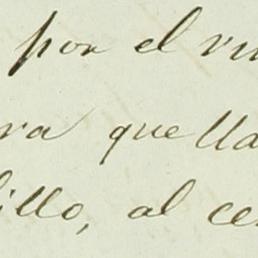 por el
ra que lla
illo, al ce